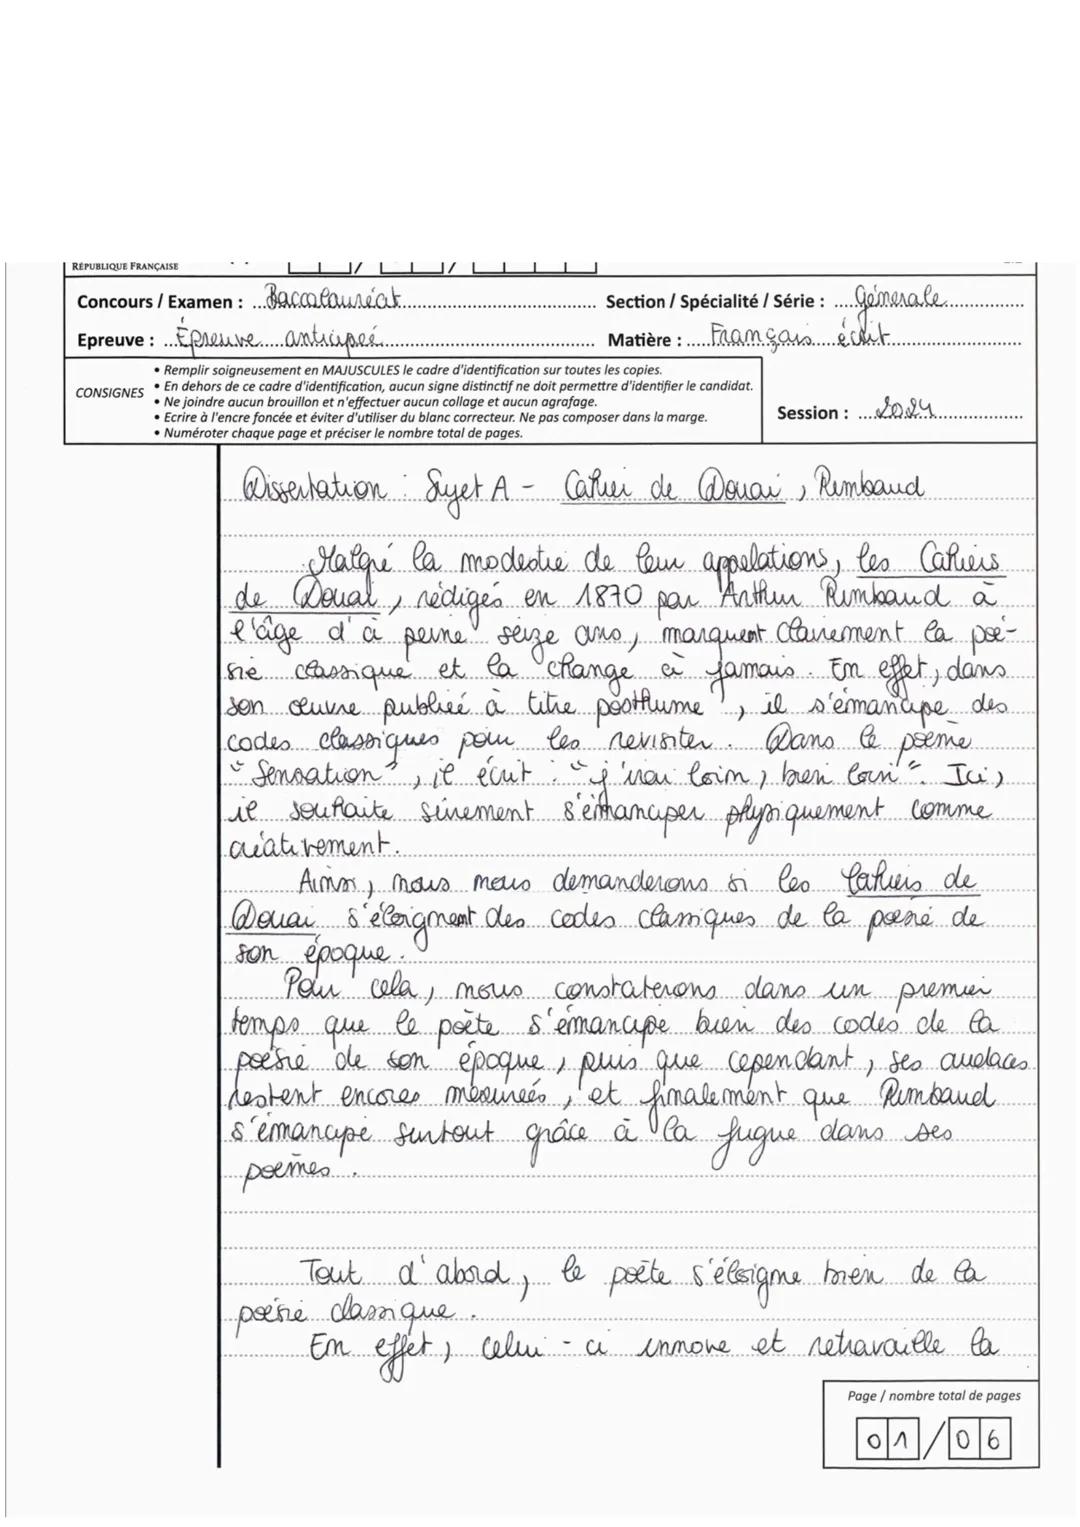 RÉPUBLIQUE FRANÇAISE
Concours / Examen : Baccalauréat Section / Spécialité / Série : Générale
Epreuve : Épreuve anticipée Matière : Français écrit
CONSIGNES
• Remplir soigneusement en MAJUSCULES le cadre d'identification sur toutes les copies.
• En dehors de ce cadre d'identification, aucun signe distinctif ne doit permettre d'identifier le candidat.
• Ne joindre aucun brouillon et n'effectuer aucun collage et aucun agrafage.
• Ecrire à l'encre foncée et éviter d'utiliser du blanc correcteur. Ne pas composer dans la marge.
• Numéroter chaque page et préciser le nombre total de pages.
Session : 2024
Dissertation : Sujet A - Cahier de Douai, Rimbaud
Malgré la modestie de leur appelations, les Cahiers
de Douai, rédigés en 1870 par Arthur Rimbaud à
l'âge d'à peine seize ans, marquent clairement la poé-
sie classique et la change à jamais. En effet, dans
son œuvre publiée à titre posthume, il s'émancipe des
codes classiques pour les revisiter. Dans le poème
"Sensation", il écrit : "j'irai loin, bien loin". Ici,
il souhaite sûrement s'émanciper physiquement comme
créativement.
Ainsi, nous nous demanderons si les Cahiers de
Douai s'éloignent des codes classiques de la poésie de
son époque.
Pour cela, nous constaterons dans un premier
temps que le poète s'émancipe bien des codes de la
poésie de son époque, puis que cependant, ses audaces
restent encores mesurées, et finalement que Rimbaud
s'émancipe surtout grâce à la fugue dans ses
poèmes.
Tout d'abord, le poète s'éloigne bien de la
poésie classique.
En effet, celui-ci innove et retravaille la
Page / nombre total de pages
01 / 06